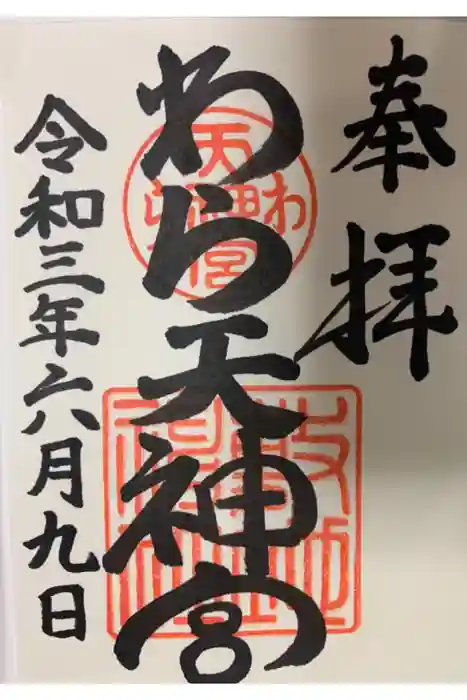 奉拝
わら天神宮
令和三年六月九日
わら天神宮
敷地神社